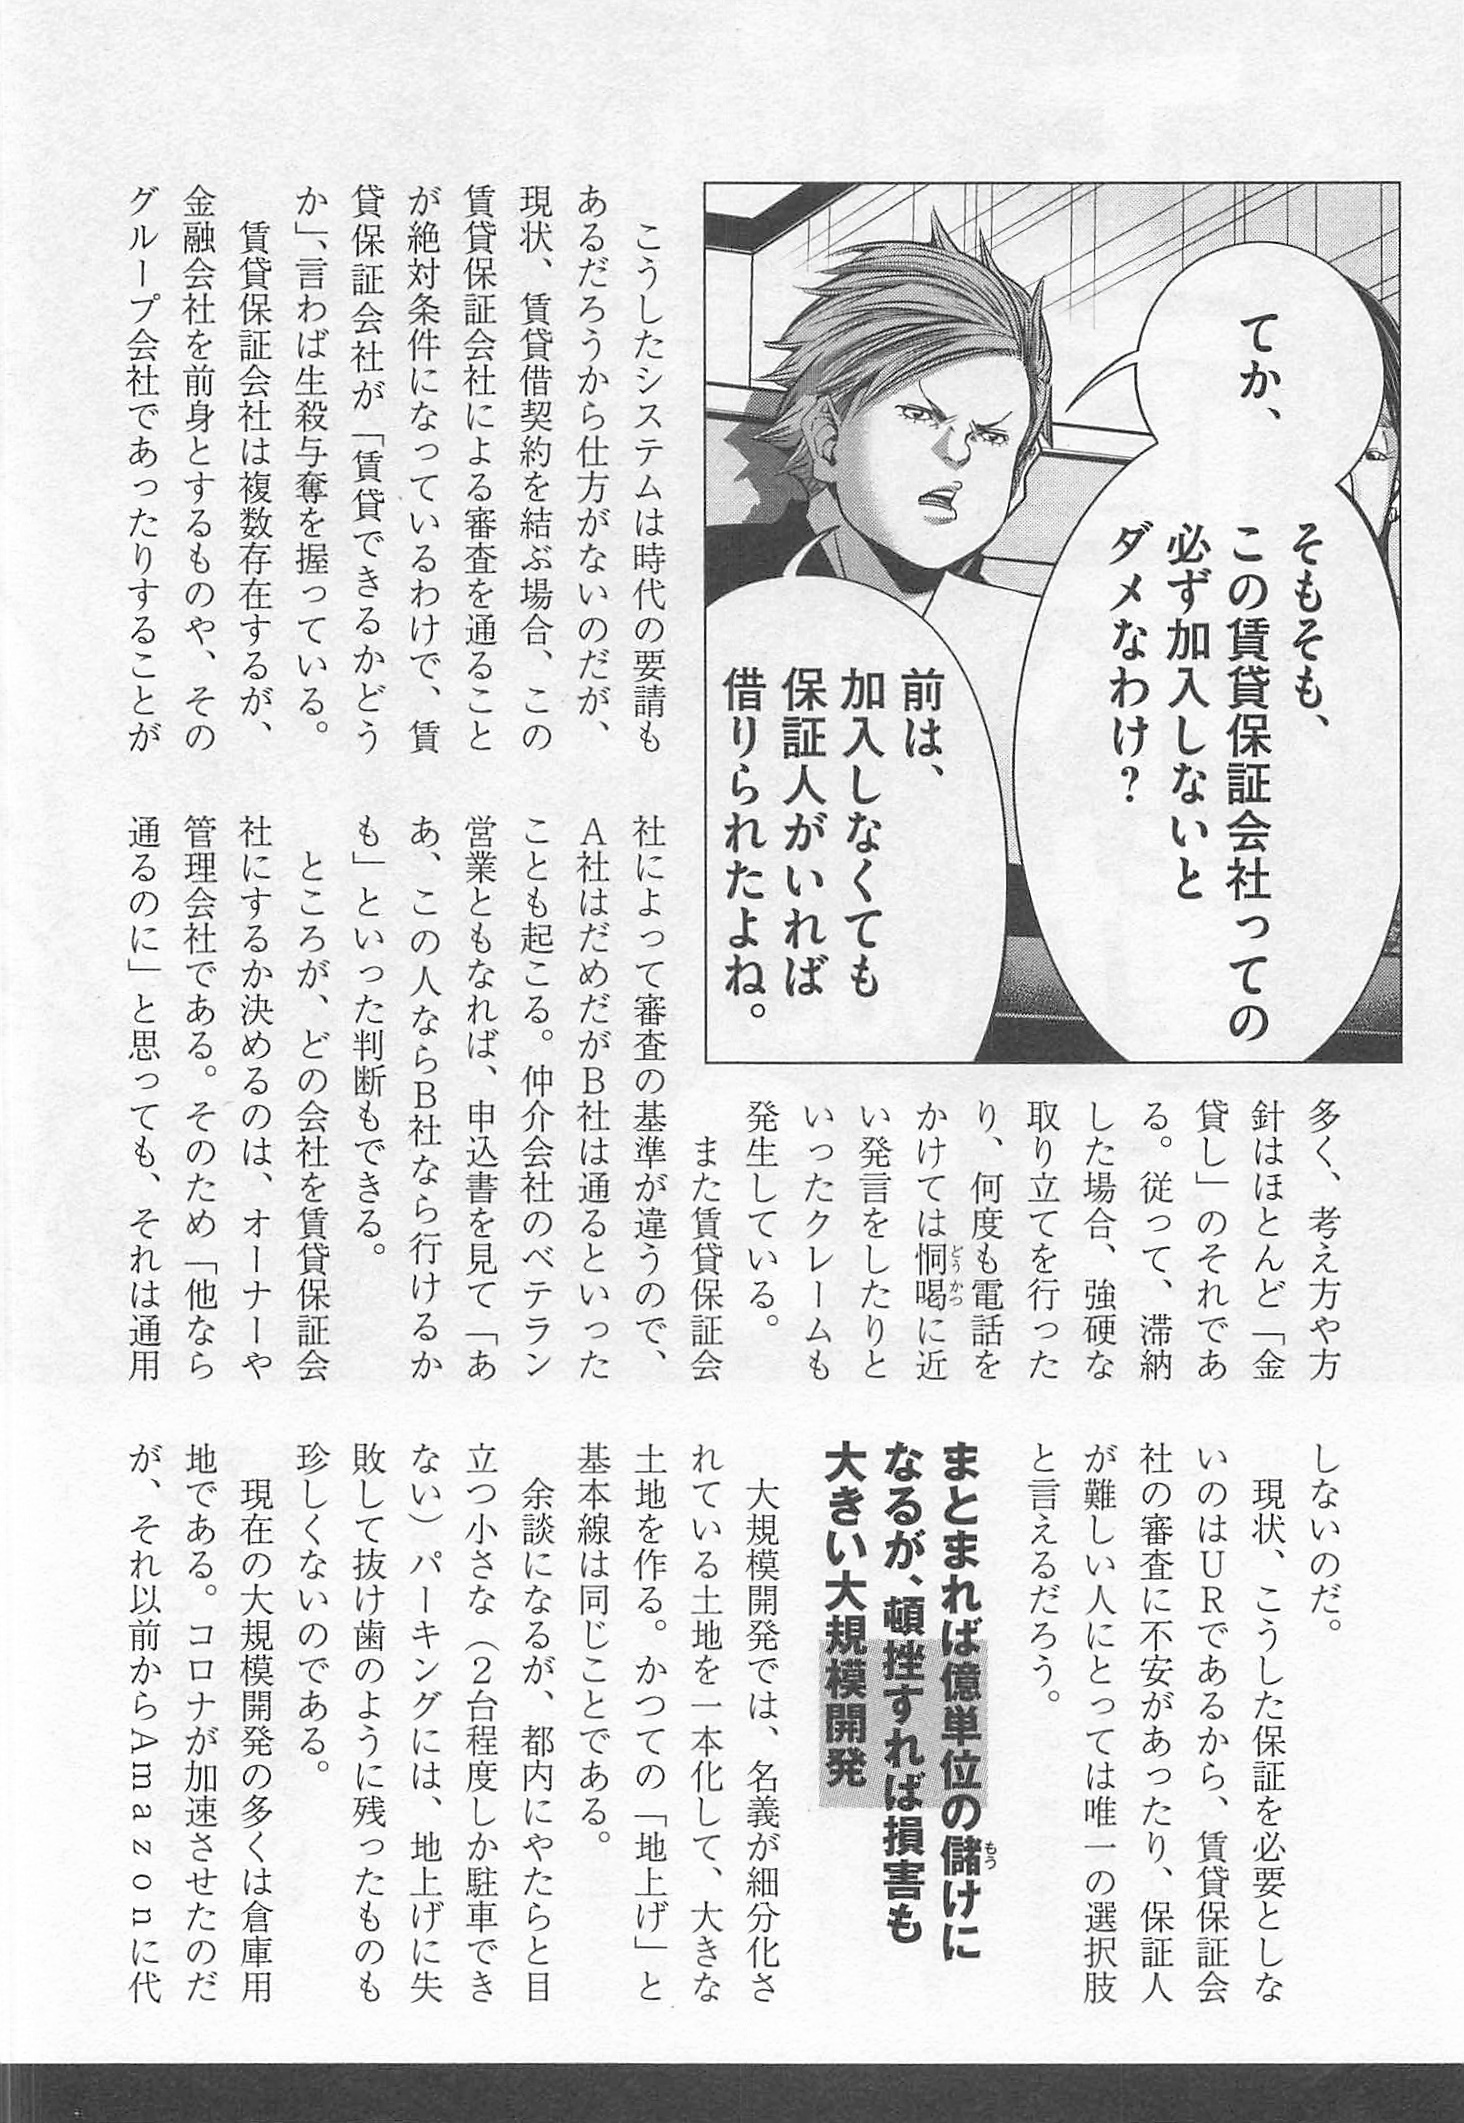 てか、
そもそも、
この賃貸保証会社っての
必ず加入しないと
ダメなわけ?
前は、
加入しなくても
保証人がいれば
借りられたよね。
こうしたシステムは時代の要請も
あるだろうから仕方がないのだが、
現状、賃貸借契約を結ぶ場合、この
賃貸保証会社による審査を通ること
が絶対条件になっているわけで、賃
貸保証会社が「賃貸できるかどう
か」、言わば生殺与奪を握っている。
賃貸保証会社は複数存在するが、
金融会社を前身とするものや、その
グループ会社であったりすることが
多く、考え方や方
針はほとんど「金
貸し」のそれであ
る。従って、滞納
した場合、強硬な
取り立てを行った
り、何度も電話を
かけては恫喝に近
どうかつ
い発言をしたりと
いったクレームも
発生している。
また賃貸保証会
社によって審査の基準が違うので、
A社はだめだがB社は通るといった
ことも起こる。仲介会社のベテラン
営業ともなれば、申込書を見て「あ
あ、この人ならB社なら行けるか
も」といった判断もできる。
ところが、どの会社を賃貸保証会
社にするか決めるのは、オーナーや
管理会社である。そのため「他なら
通るのに」と思っても、それは通用
しないのだ。
現状、こうした保証を必要としな
いのはURであるから、賃貸保証会
社の審査に不安があったり、保証人
が難しい人にとっては唯一の選択肢
と言えるだろう。
まとまれば億単位の儲けに
もう
なるが、頓挫すれば損害も
大きい大規模開発
大規模開発では、名義が細分化さ
れている土地を一本化して、大きな
土地を作る。かつての「地上げ」と
基本線は同じことである。
余談になるが、都内にやたらと目
立つ小さな(2台程度しか駐車でき
ない)パーキングには、地上げに失
敗して抜け歯のように残ったものも
珍しくないのである。
現在の大規模開発の多くは倉庫用
地である。コロナが加速させたのだ
が、それ以前からAmazonに代